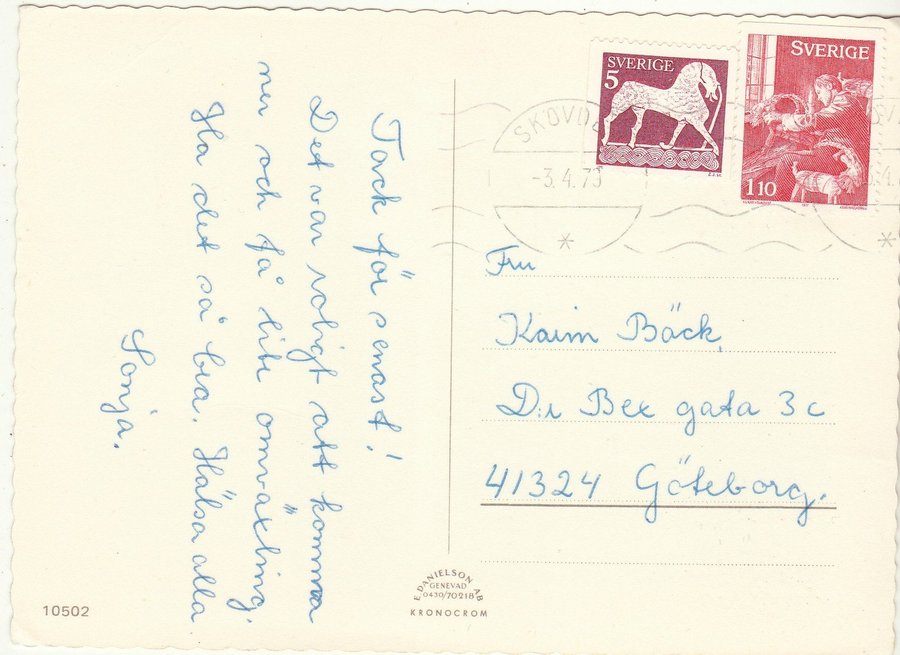 Tack för senast!
Det var roligt att komma
ner och få lite omväxling.
Ha det så bra. Hälsa alla
Sonja.
SVERIGE
5
SVERIGE
1.10
SKÖVDE
-3.4.79
Fru
Karin Bäck,
D:r Bex gata 3c
41324 Göteborg.
E. DANIELSON AB
GENEVAD
0430/70218
KRONOCROM
10502